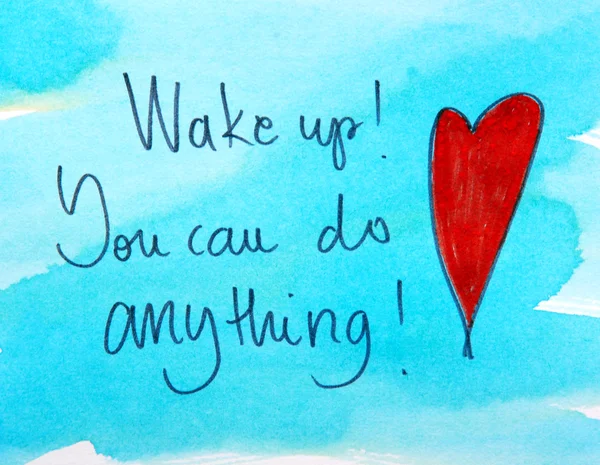 Wake up!
You can do
anything!